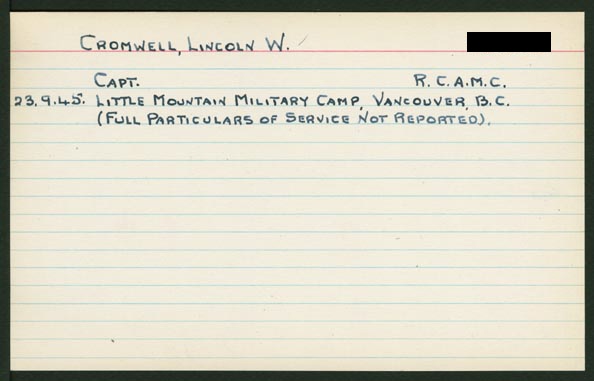 CROMWELL, LINCOLN W.
CAPT. R.C.A.M.C.
23.9.45. LITTLE MOUNTAIN MILITARY CAMP, VANCOUVER, B.C.
(FULL PARTICULARS OF SERVICE NOT REPORTED).